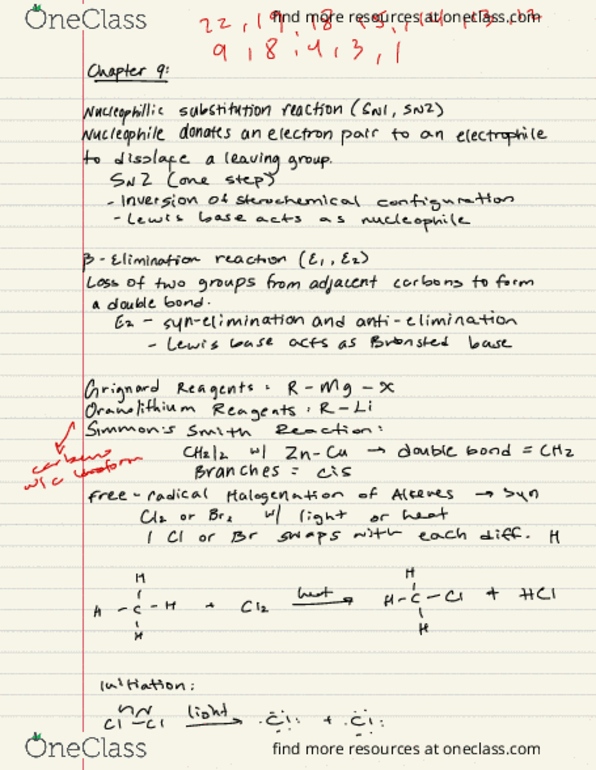 OneClass
find more resources at oneclass.com
22, 19, 18, 15, 14, 13, 12
9, 8, 4, 3, 1
Chapter 9:
Nucleophillic substitution reaction (SN1, SN2)
Nucleophile donates an electron pair to an electrophile
to displace a leaving group.
SN2 (one step)
- Inversion of sterochemical configuration
- Lewis base acts as nucleophile
β - Elimination reaction (E1, E2)
Loss of two groups from adjacent carbons to form
a double bond.
E2 - syn-elimination and anti-elimination
- Lewis base acts as Bronsted base
Grignard Reagents: R-Mg-X
Oranolithium Reagents: R-Li
Simmon's Smith Reaction:
CH2I2 w/ Zn-Cu → double bond = CH2
carbene
w/
Branches = cis
Free-radical Halogenation of → syn
Cl2 or Br2 w/ light or heat
1 Cl or Br swaps with each diff. H
H
H - C - H + Cl2 heat → H - C - Cl + HCl
H
H
H
Initiation:
Cl - Cl light → ·Cl: + ·Cl:
OneClass
find more resources at oneclass.com